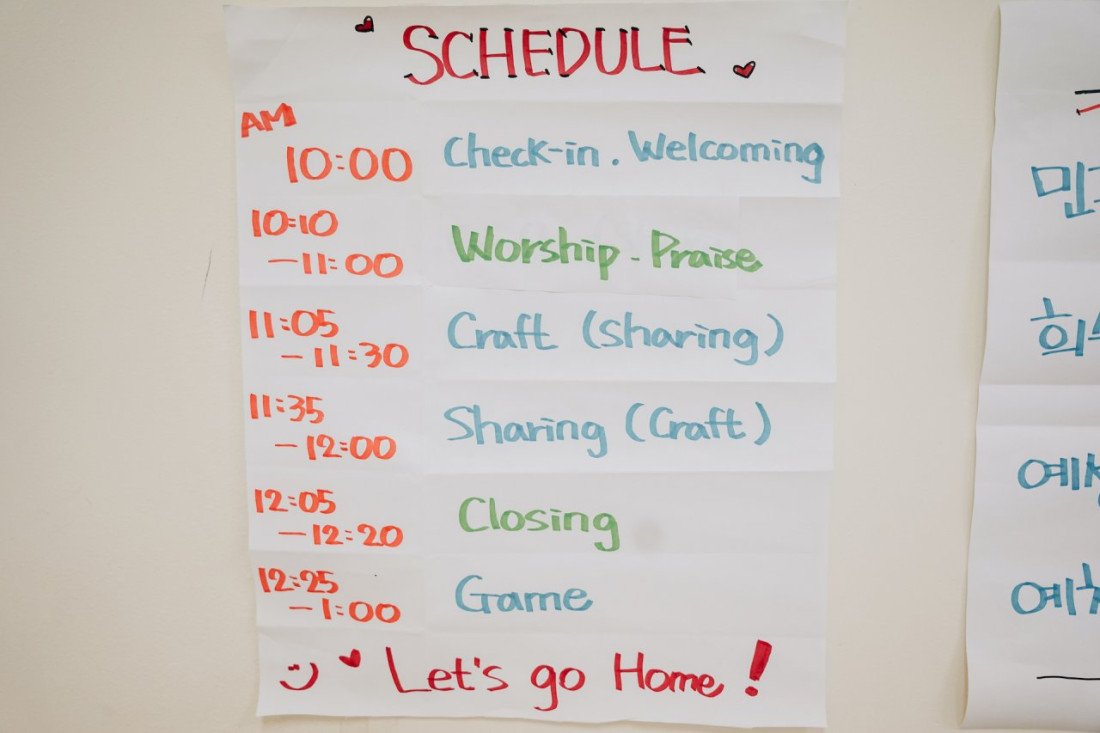 SCHEDULE
AM
10:00 Check-in. Welcoming
10:10
-11:00 Worship. Praise
11:05
-11:30 Craft (Sharing)
11:35
-12:00 Sharing (Craft)
12:05
-12:20 Closing
12:25
-1:00 Game
Let's go Home!